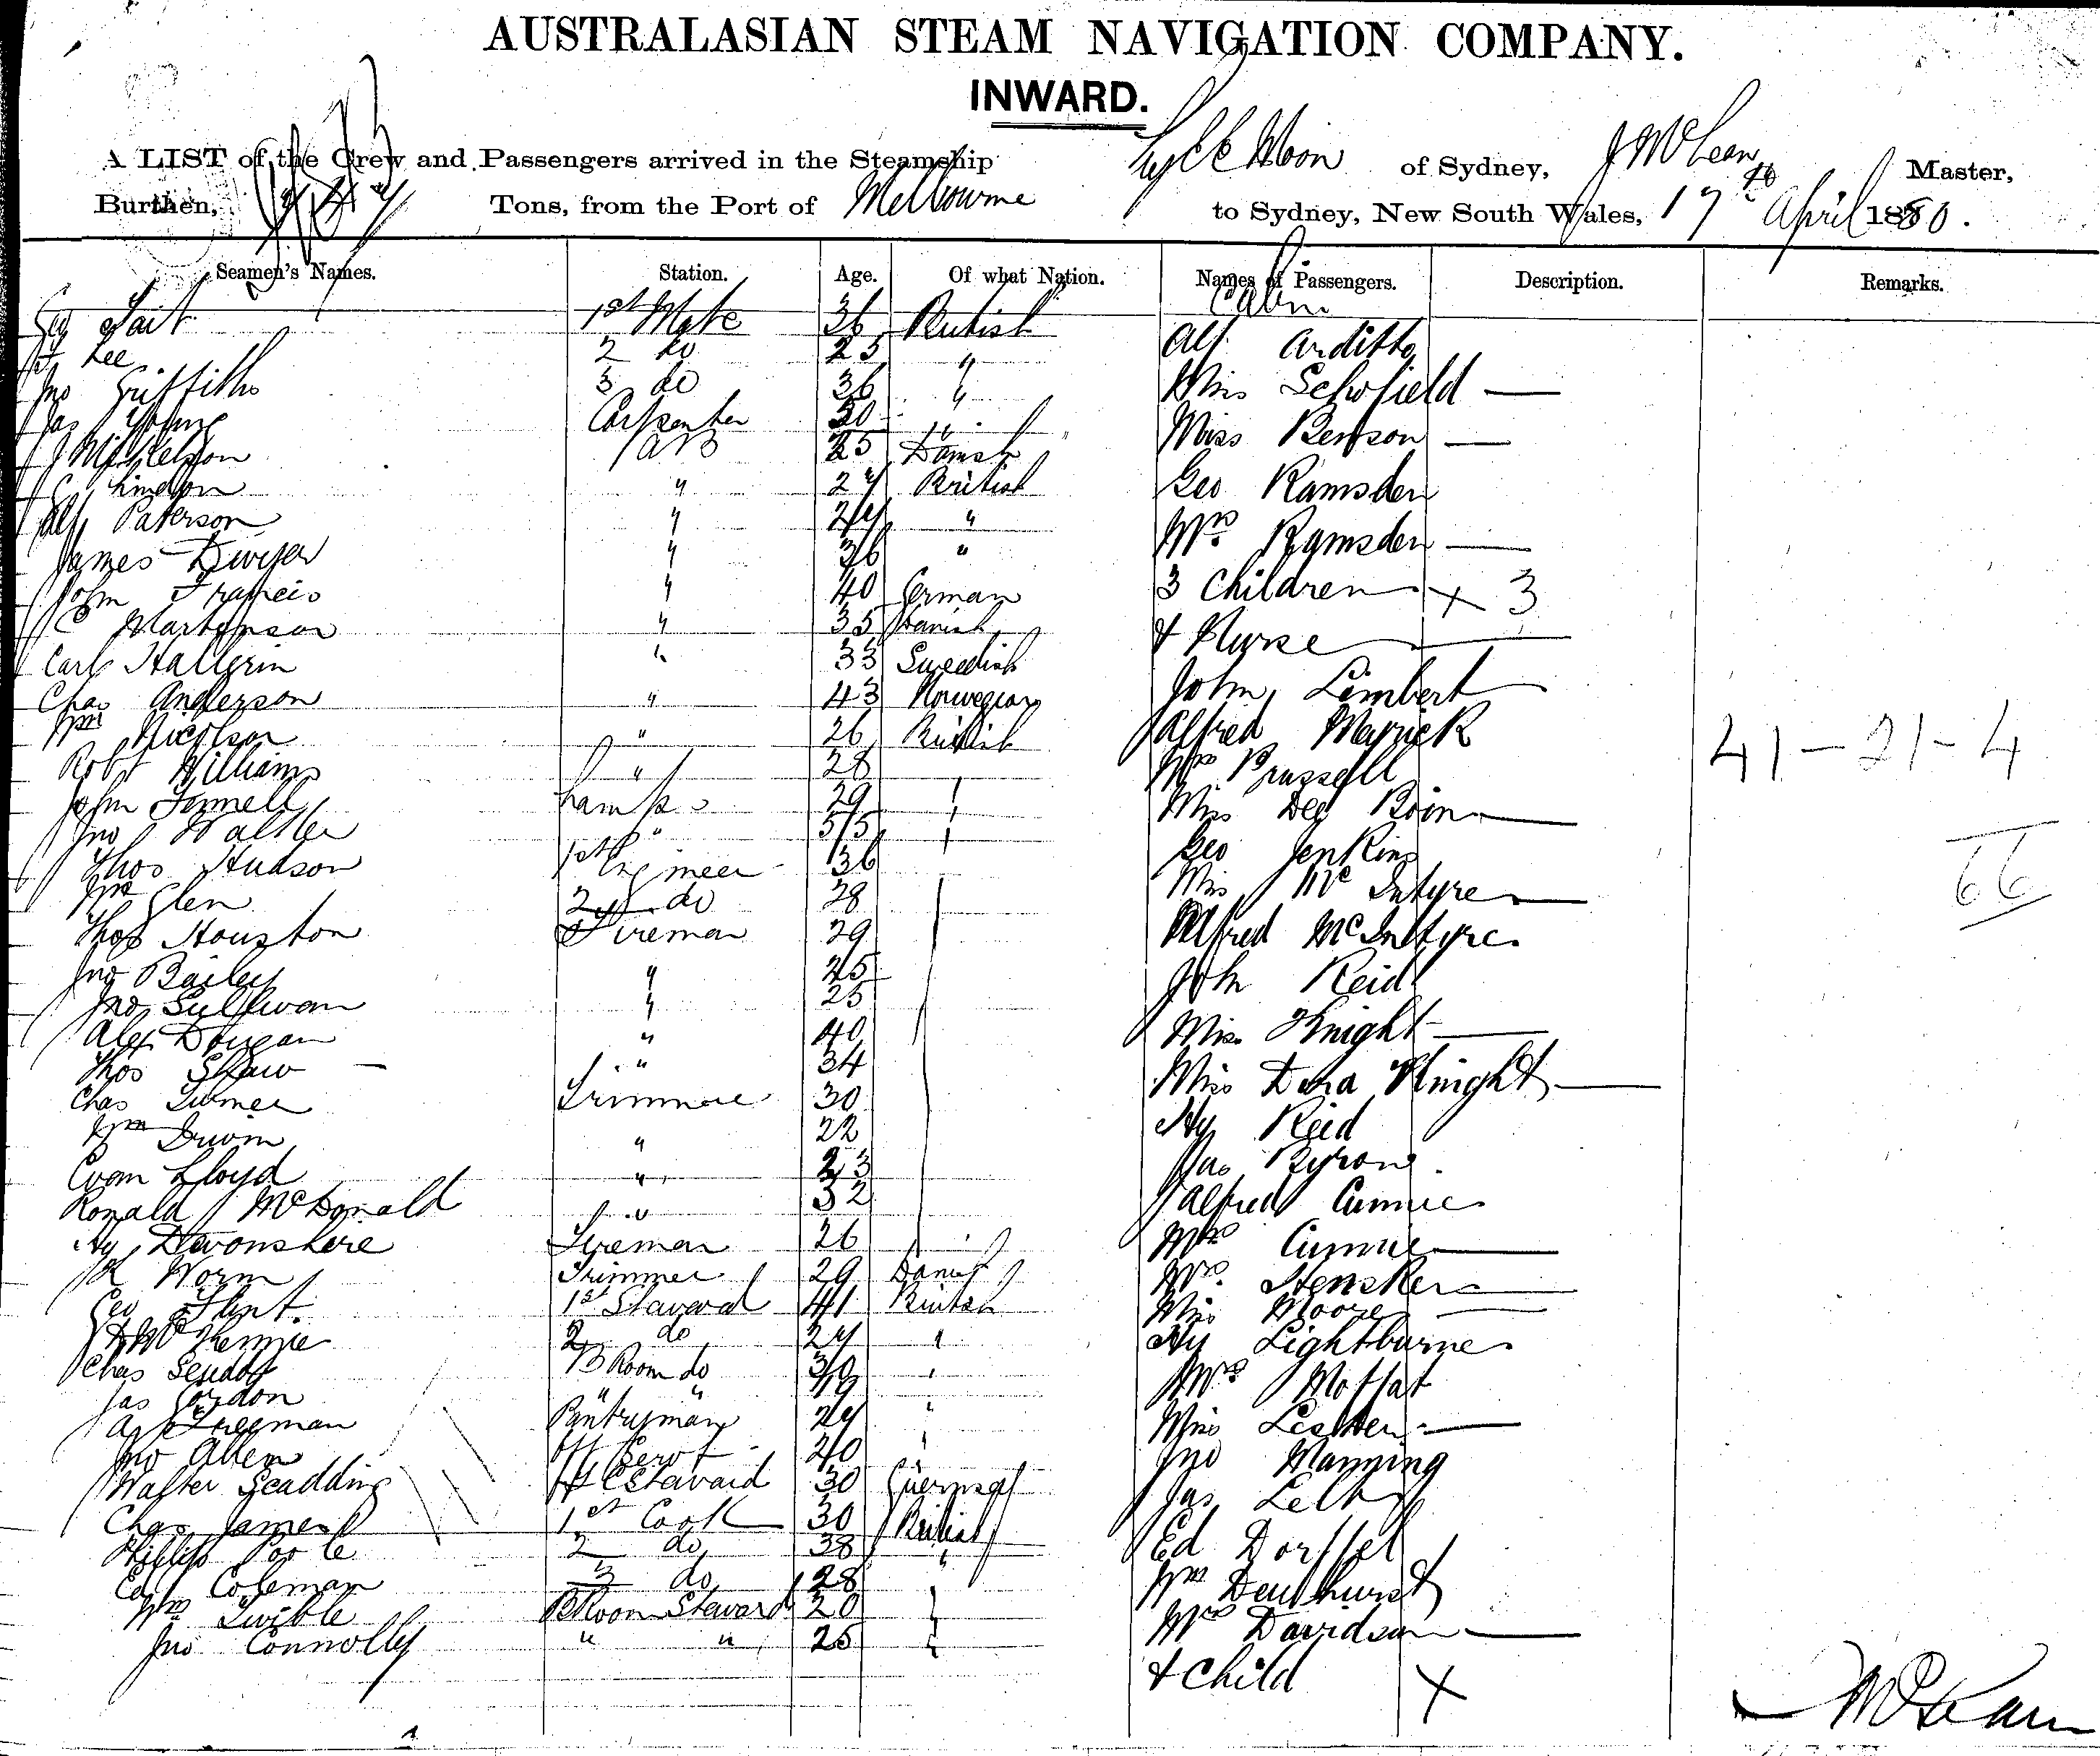 AUSTRALASIAN STEAM NAVIGATION COMPANY.
INWARD.
A LIST of the Crew and Passengers arrived in the Steamship of Sydney, J McLean Master,
Burthen, Tons, from the Port of Melbourne to Sydney, New South Wales, 17th April 1880.
Seamen's Names. Station. Age. Of what Nation. Names of Passengers. Description. Remarks.
Cabin
Tait 1st Mate 36 British Alf Arditto
Lee 2 do 25 " Miss Schofield —
Jno Griffiths 3 do 36 "
Jas Young Carpenter 30 " Miss Benson —
AB 25 Danish
" 27 British Geo Ramsden
Paterson " 24 "
James Dwyer " 36 " Mrs Ramsden —
John Francis " 40 German 3 Children × 3
C " 35 Danish & Nurse —
Carl Hallgrin " 33 Swedish
Chas Anderson " 43 Norwegian John Limbert
Wm Nicolson " 26 British Alfred Meyrick 41 - 21 - 4
Robt Williams " 28 Mrs Brussell
John Lamps 29
Jno Walker " 55 Geo Jenkins 66
Thos Hudson 1st Engineer 36 Miss McIntyre —
Wm Glen 2 do 28
Thos Houston Fireman 29 Alfred McIntyre
Jno Bailey " 45 Joh Reid
Jno Sullivan " 25
Alex Dougan " 40 Miss Knight —
Thos Shaw " 34
Chas Turner Trimmer 30 Miss Dora Knight —
Wm Irwin " 22 Hy Reid
Evan Lloyd " 23 Jas Byrons
Ronald McDonald " 32 Alfred
Hy Devonshire Fireman 26 Mrs —
Worm Trimmer 29 Danish Mrs —
Geo Flint 1st Steward 41 British Miss Moore —
2 do 24 " Hy Lightburne
Chas B Room do 39 "
Jas Gordon " " 19 Mrs Moffat
A Freeman Pantryman 24 " Miss —
Jno Allen 40 Jno Manning
Walter Scadding Steward 30 Jas
Chas James 1st Cook 30 British Ed
Phillip Poole 2 do 38 "
Coleman 3 do 28 Wm
Wm Twible B Room Steward 20 Mrs Davidson —
Jno Connolly " " 25
& Child ×
McLean